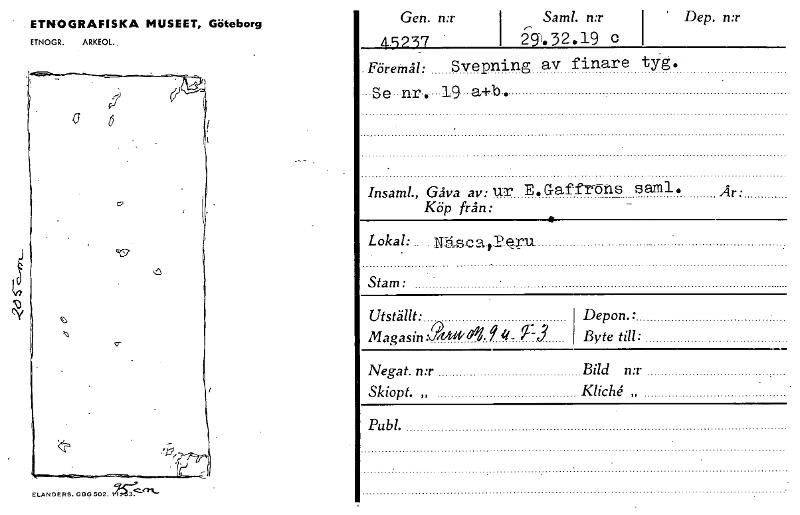 ETNOGRAFISKA MUSEET, Göteborg
ETNOGR. ARKEOL.
205 cm
95 cm
ELANDERS. GBG 502.
Gen. n:r Saml. n:r Dep. n:r
45237 29.32.19 c
Föremål: Svepning av finare tyg.
Se nr. 19 a+b.
Insaml., Gåva av: ur E.Gaffrons saml. År:
Köp från:
Lokal: Nasca,Peru
Stam:
Utställt: Depon.:
Magasin: Peru M. 9 u. F-3 Byte till:
Negat. n:r Bild n:r
Skiopt. „ Kliché „
Publ.